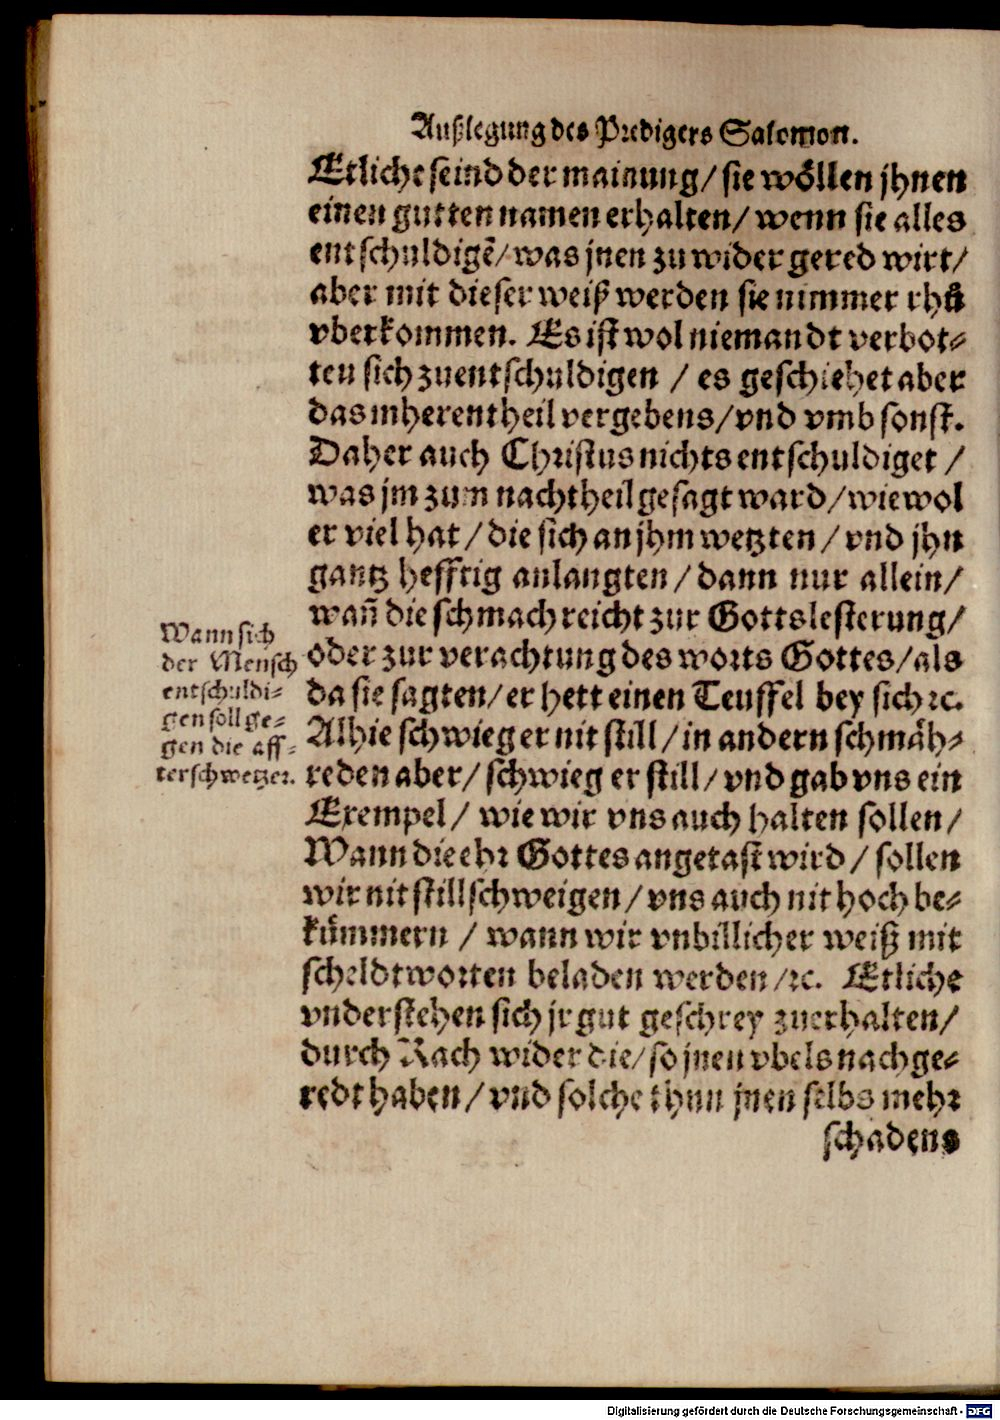 Außlegung des Predigers Salomon.
Etliche seind der mainung/ sie wöllen jhnen
einen gutten namen erhalten/ wenn sie alles
entschuldigẽ/ was jnen zu wider gered wirt/
aber mit dieser weiß werden sie nimmer rhů
vberkommen. Es ist wol niemandt verbot-
ten sich zuentschuldigen / es geschiehet aber
das mherentheil vergebens/ vnd vmb sonst.
Daher auch Christus nichts entschuldiget /
was jm zum nachtheil gesagt ward/ wiewol
er viel hat / die sich an jhm wetzten / vnd jhn
gantz hefftig anlangten / dann nur allein/
wañ die schmach reicht zur Gottslesterung/
oder zur verachtung des worts Gottes/ als
da sie sagten/ er hett einen Teuffel bey sich ꝛc.
Alhie schwieg er nit still / in andern schmäh-
reden aber/ schwieg er still/ vnd gab vns ein
Exempel/ wie wir vns auch halten sollen/
Wann die ehr Gottes angetast wird / sollen
wir nit stillschweigen / vns auch nit hoch be-
kümmern / wann wir vnbillicher weiß mit
scheldtworten beladen werden /ꝛc. Etliche
vnderstehen sich jr gut geschrey zuerhalten/
durch Rach wider die/ so jnen vbels nachge-
redt haben / vnd solche thun jnen selbs mehr
schadens
Wann sich
der Mensch
entschuldi-
gen soll ge-
gen die aff-
terschwetzer.
Digitalisierung gefördert durch die Deutsche Forschungsgemeinschaft - DFG